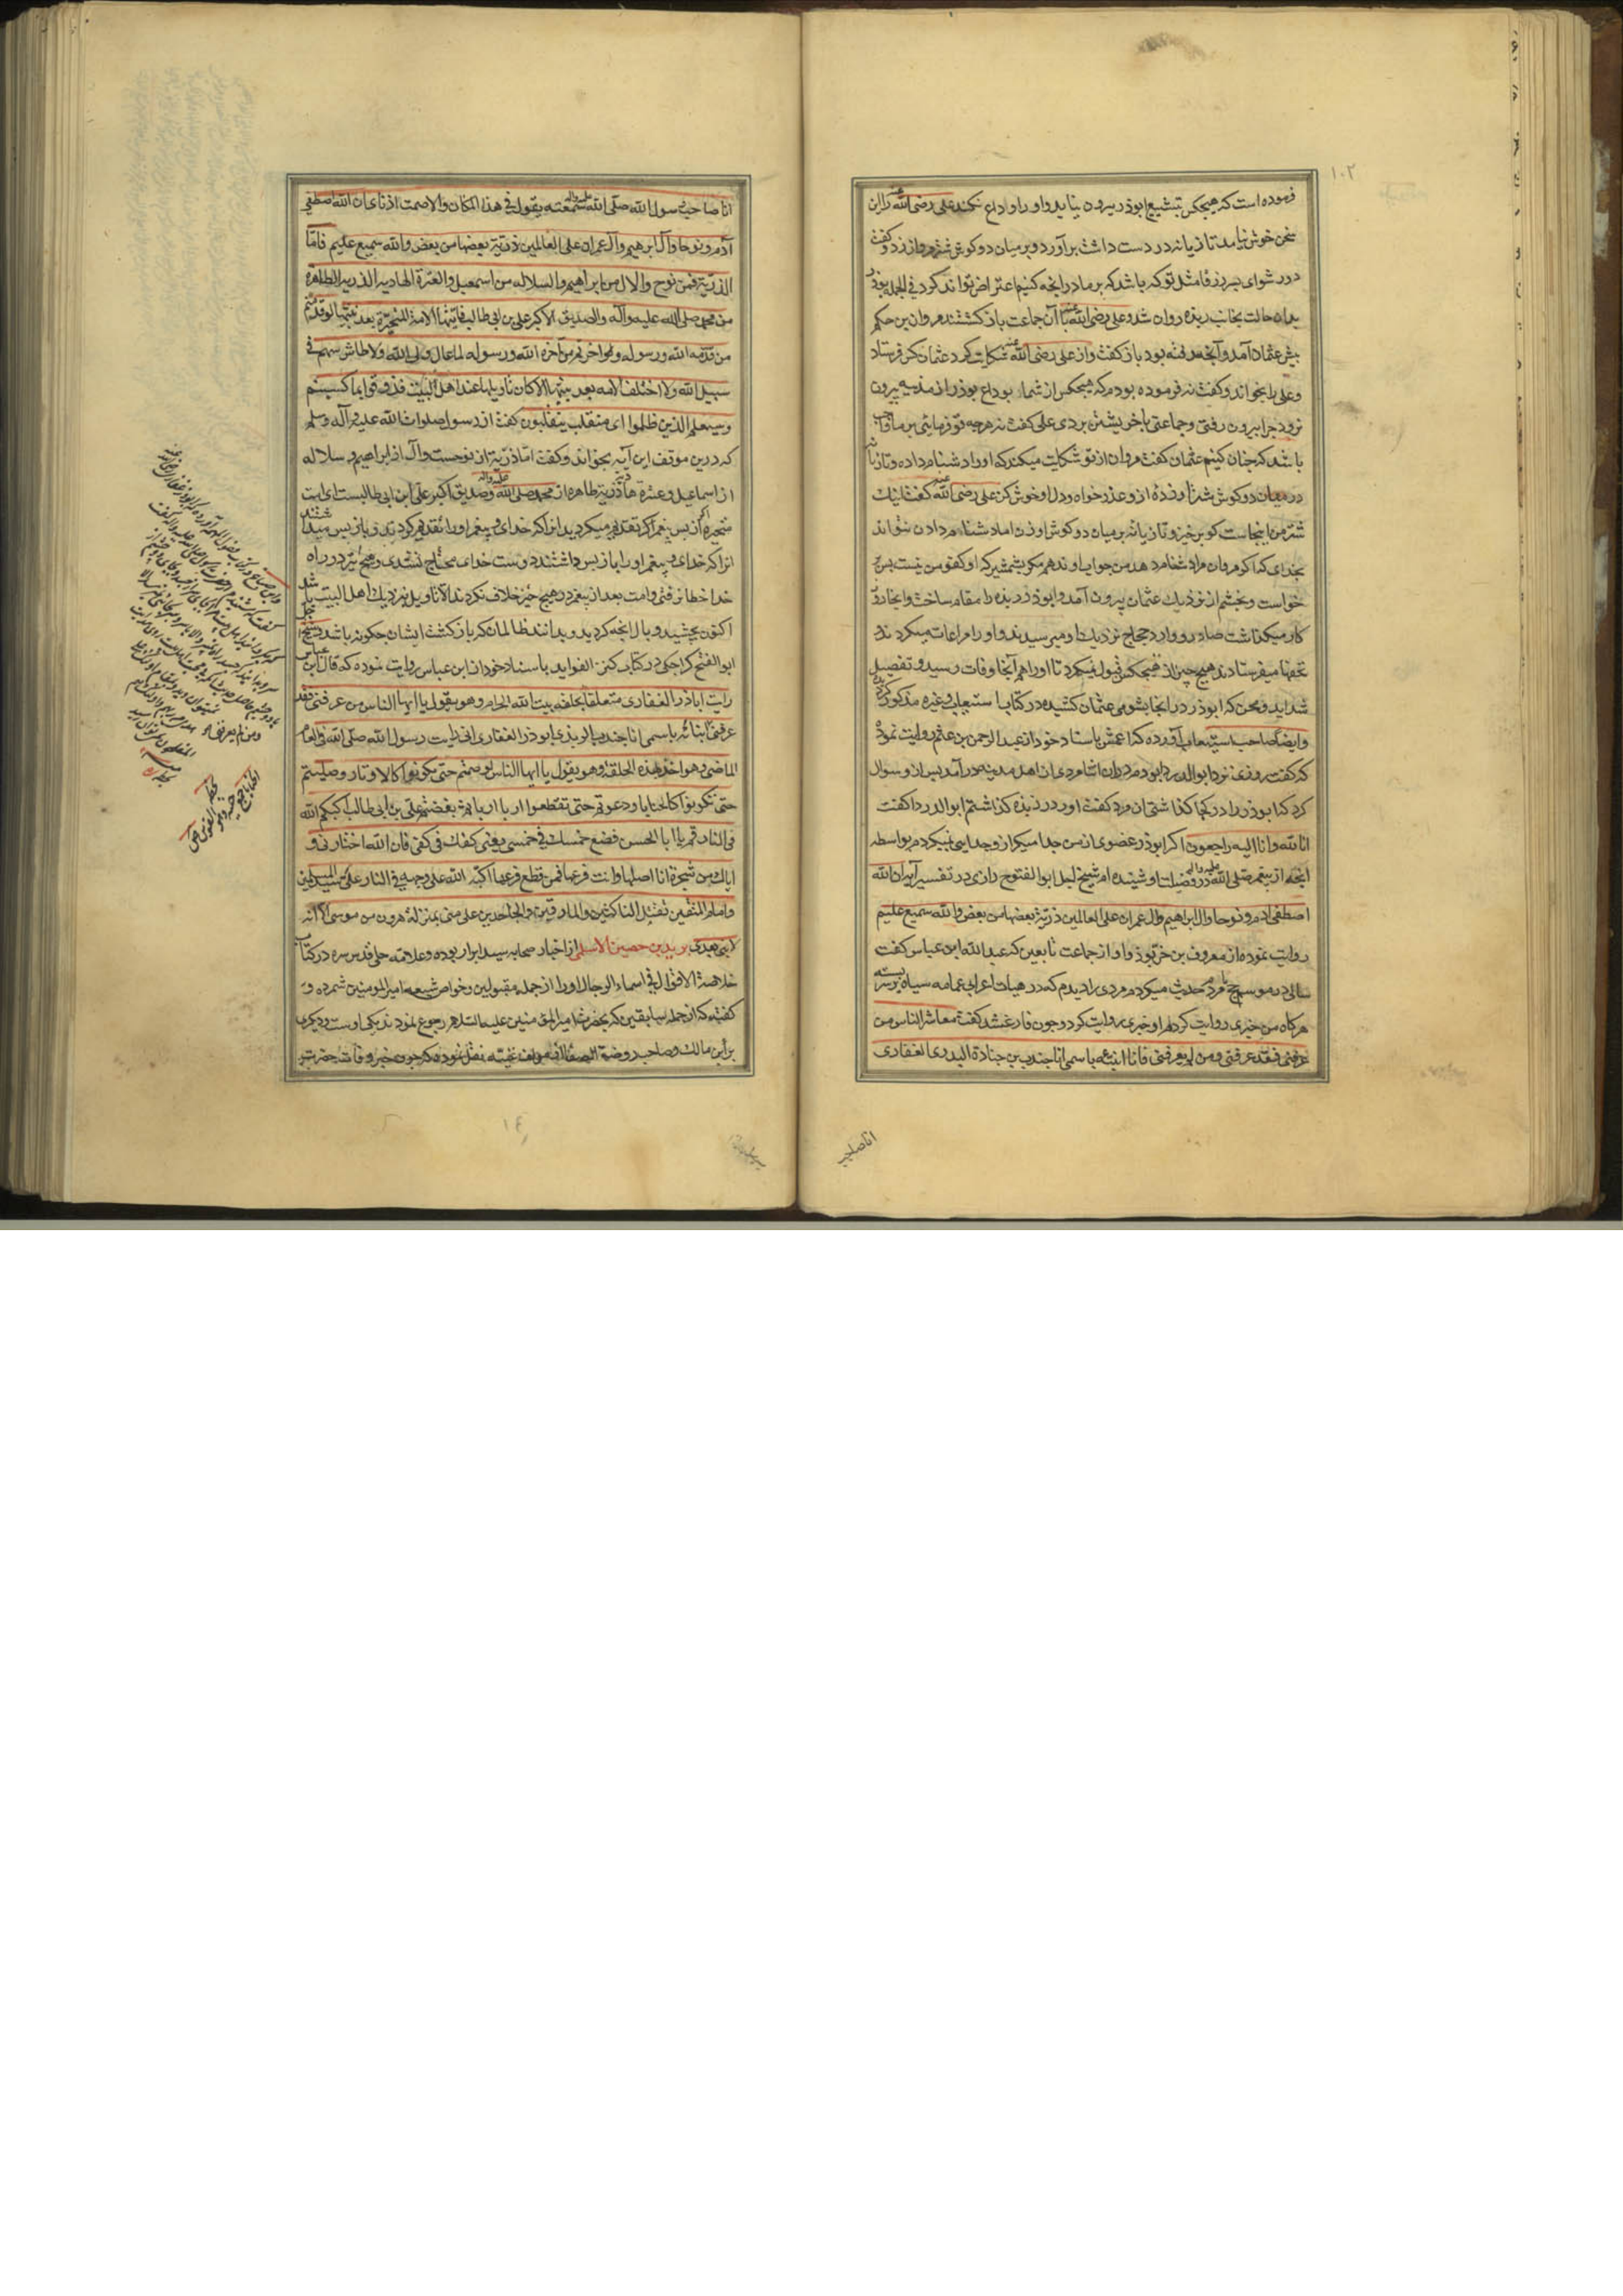 ۱۰۲
فرموده است که هیچکس بتشییع ابوذر بیرون نیاید و او را وداع نکند علی رضی الله عنه را این
سخن خوش نیامد تازیانه در دست داشت برآورد و بر میان دو گوش شتر مروان زد و گفت
دور شو ای پسر زرقا مثل تو که باشد که بر ما در آنچه کنیم اعتراض تواند کرد فی الجمله ابوذر
بدان حالت بجانب ربذه روان شد و علی رضی الله عنه با آن جماعت باز گشتند مروان بن حکم
پیش عثمان آمد و آنچه رفته بود باز گفت و از علی رضی الله عنه شکایت کرد عثمان کس فرستاد
و علی را بخواند و گفت نه فرموده بودم که هیچکس از شما بوداع بوذر از مدینه بیرون
نرود چرا بیرون رفتی و جماعتی با خویشتن بردی علی گفت نه هرچه تو فرمائی بر ما واجب
باشد که چنان کنیم عثمان گفت مروان از تو شکایت میکند که او را دشنام داده و تازیانه
در میان دو گوش شتر او زده از و عذر خواه و دل او خوش کن علی رضی الله عنه گفت اینک
شتر من اینجاست گو برخیز و تازیانه بر میان دو گوش او زن اما دشنام دادن نتواند
بخدای که اگر مروان مرا دشنام دهد من جواب او ندهم مگر بشمشیر که او کفو من نیست پس بر
خواست و بخشم از نزدیک عثمان بیرون آمد و ابوذر ربذه را مقام ساخت و آنجا روز
کار میگذاشت صادر و وارد حجاج نزدیک او میرسیدند و او را مراعات میکردند و
تحفها میفرستادند هیچ چیز از هیچکس قبول نمیکرد تا او را هم آنجا وفات رسید و تفصیل
شداید و محن که ابوذر در آنجا بشومی عثمان کشیده در کتاب استیعاب و غیره مذکور
و ایضا صاحب استیعاب آورده که اعمش باسناد خود از عبد الرحمن بن غنم روایت نموده
که گفت روزی نزد ابو الدردا بودم مردی از اهل مدینه در آمد پس از و سوال
کرد که ابوذر را در کجا گذاشتی آن مرد گفت او را در ربذه گذاشتم ابو الدردا گفت
انا لله و انا الیه راجعون اگر ابوذر عضوی از من جدا میکرد از و جدایی نمیکردم بواسطه
آنچه از پیغمبر صلی الله علیه واله در فضیلت او شنیده ام شیخ جلیل ابو الفتوح رازی در تفسیر آیه ان الله
اصطفی ادم و نوحا و ال ابراهیم و ال عمران علی العالمین ذریة بعضها من بعض و الله سمیع علیم
روایت نموده از معروف بن خربوذ و او از جماعت تابعین که عبد الله ابن عباس گفت
سالی در موسم حج با مردم حدیث میکردم مردی را دیدم که در هیات اعرابی عمامه سیاه بر سر بسته
هرگاه من خبری روایت کردم او خبری روایت کرد و چون فارغ شد گفت معاشر الناس من
عرفنی فقد عرفنی و من لم یعرفنی فانا انبئه باسمی انا جندب بن جنادة البدری الغفاری
انا صاحب
انا صاحب رسول الله صلی الله علیه واله سمعته یقول فی هذا المکان و الا صمت اذنای ان الله اصطفی
آدم و نوحا و آل ابرهیم و آل عمران علی العالمین ذریة بعضها من بعض و الله سمیع علیم فاما
الذریة فمن نوح و الال من ابراهیم و السلاله من اسمعیل و العترة الهادیه الذریه الطاهرة
من محمد صلی الله علیه و آله و الصدیق الاکبر علی بن ابی طالب فایتها الامة المتحیرة بعد نبیها لو قدمتم
من قدمه الله و رسوله و لو اخرتم من آخره الله و رسوله لما عال ولی الله و لا طاش سهم فی
سبیل الله و لا اختلف الامه بعد نبیها الا کان تاویلها عند اهل البیت فذوقوا بما کسبتم
و سیعلم الذین ظلموا ای منقلب ینقلبون گفت از رسول صلوات الله علیه و آله و سلم
که درین موقف این آیه بخواند و گفت اما ذریة از نوحست و آل از ابراهیم و سلاله
از اسماعیل و عترة هادیه ذریة طاهره از محمد صلی الله علیه واله و صدیق اکبر علی ابن ابی طالبست ای امت
متحیره از پس پیغمبر اگر تقدیم میکردید انرا که خدای و پیغمبر او را تقدیم کردند و باز پس میداشتند
انرا که خدای و پیغمبر او را باز پس داشتند دوست خدای محتاج نشدی و هیچ تیر در راه
خدا خطا نرفتی و امت بعد از پیغمبر در هیچ چیز خلاف نکردند الا تاویل نزدیک اهل البیت باشد
اکنون بچشید وبال آنچه کردید و بدانند ظالمان که بازگشت ایشان چگونه باشد و شیخ جلیل
ابو الفتح کراجکی در کتاب کنز الفواید باسناد خود از ابن عباس روایت نموده که قال ابن عباس
رایت اباذر الغفاری متعلقا بحلقه بیت الله الحرام و هو یقول یا ایها الناس من عرفنی فقد
عرفنی انبائه باسمی انا جندب الربذی ابوذر الغفاری انی رایت رسول الله صلی الله فی العام
الماضی و هو اخذ بهذه الحلقه و هو یقول یا ایها الناس لو صمتم حتی تکونوا کالاوتار و صلیتم
حتی تکونوا کالحنایا و دعوتم حتی تقطعوا اربا اربا ثم بغضتم علی بن ابی طالب اکبکم الله
فی النار قم یا ابا الحسن فضع خمسک فی خمسی یعنی کفک فی کفی فان الله اختارنی و
ایاک من شجرة انا اصلها و انت فرعها فمن قطع فرعها اکبه الله علی وجهه فی النار علی سید المسلمین
و امام المتقین تقتل الناکثین و المارقین و الجاحدین علی منی بمنزلة هرون من موسی الا انه
لا نبی بعدی برید بن حصین الاسلمی از اخیار صحابه سید ابرار بوده و علامه حلی قدس سره در کتاب
خلاصة الاقوال فی اسماء الرجال او را از جمله مقبولین و خواص شیعه امیر المومنین شمرده و
گفته که از جمله سابقین که بحضرت امیر المومنین علیه السلام رجوع نمودند یکی اوست و دیگری
براء بن مالک و صاحب روضة الصفا نقل نموده که چون خبر وفات حضرت